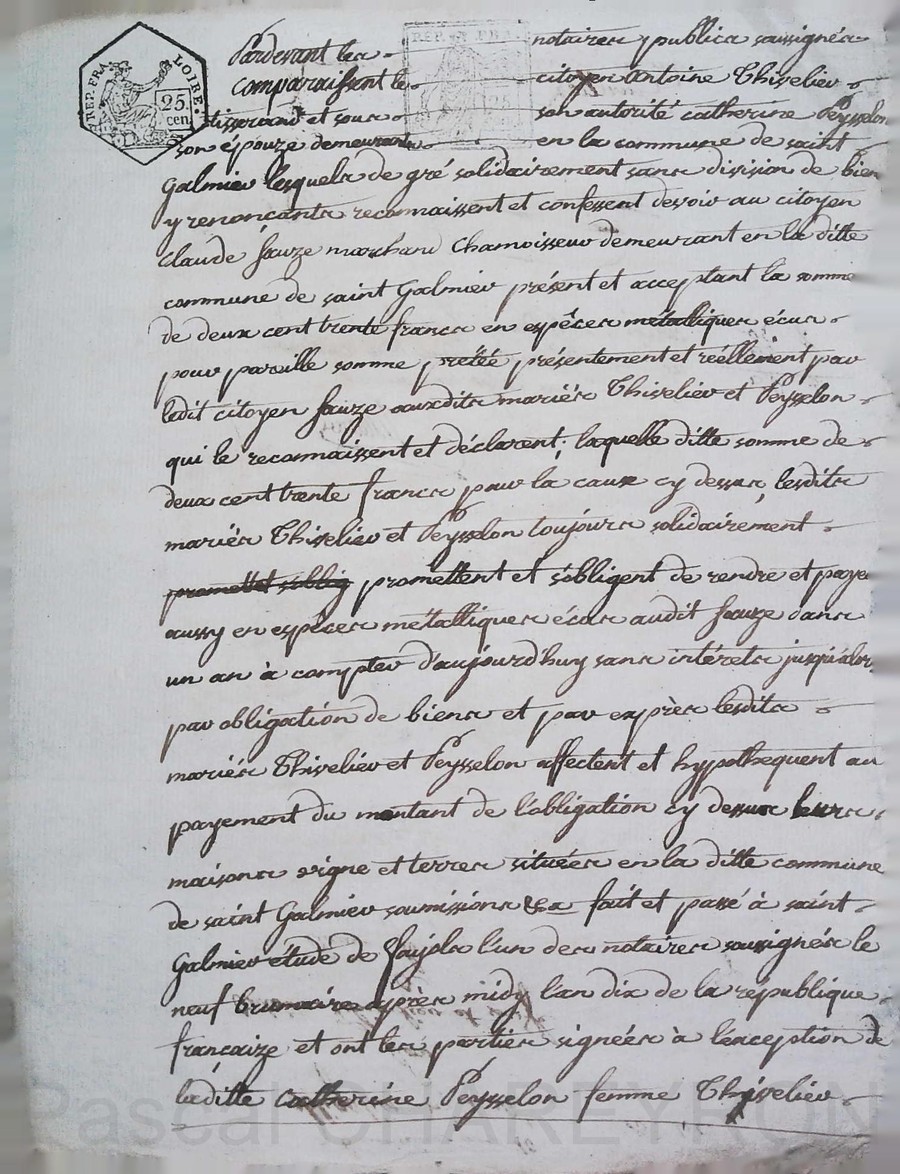 REP. FRA. LOIRE. 25 cen
REP. FRA.
Pardevant les notaires publics soussignés
comparaissent le citoyen antoine Thivelier
tisserand et sous son autorité catherine Peysselon
son epouze demeurants en la commune de saint
Galmier lesquels de gré solidairement sans division de bien
y renonçants reconnaissent et confessent devoir au citoyen
claude fauze marchand Chamoisseur demeurant en la ditte
commune de saint Galmier présent et acceptant la somme
de deux cent trente francs en espêces métalliques écus
pour pareille somme pretée présentement et réellement par
ledit citoyen fauze auxdits mariés Thivelier et Peysselon
qui le reconnaissent et déclarent; laquelle ditte somme de
deux cent trente francs pour la cause cy dessus, lesdits
mariés Thivelier et Peysselon toujours solidairement
promettet soblig promettent et s'obligent de rendre et payer
aussy en espêces métalliques écus audit fauze dans
un an à compter d'aujourd'huy sans intérets jusqu'alors,
par obligation de biens et par exprès lesdits
mariés Thivelier et Peysselon affectent et hypothequent au
payement du montant de l'obligation cy dessus leurs
maisons vigne et terres situées en la ditte commune
de saint Galmier soumissions &a fait et passé à saint
Galmier étude de fayols l'un des notaires soussignés le
neuf brumaire après midy l'an dix de la république
françaize et ont les parties signées à l'exception de
laditte catherine Peysselon femme Thivelier
Pascal CHAREYRON